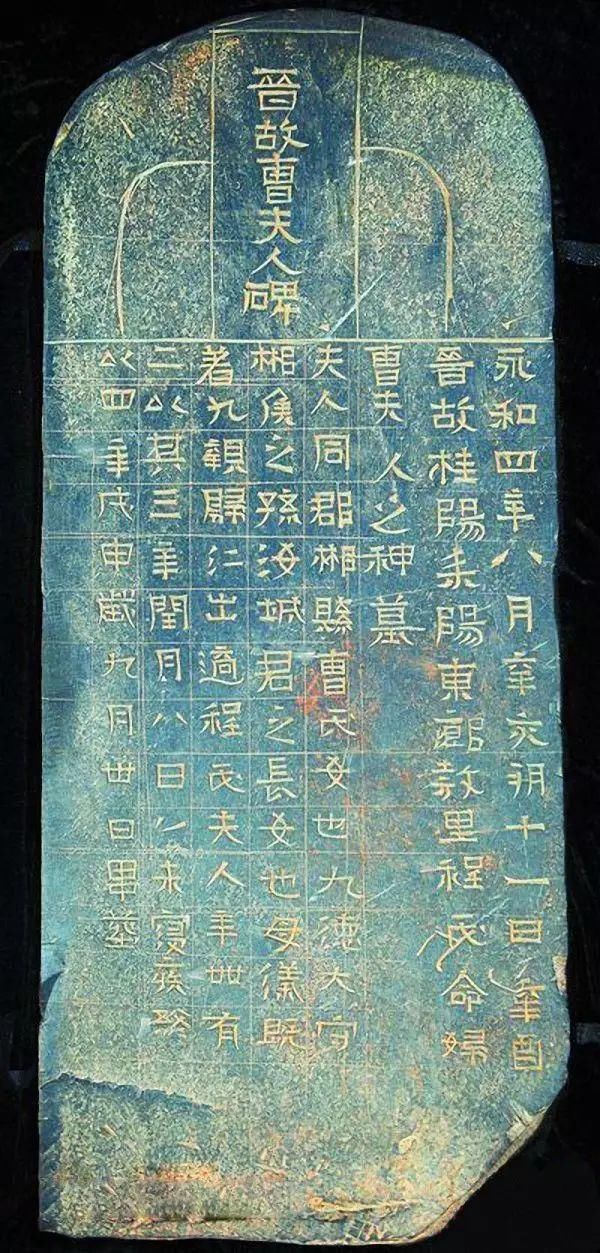 晉故曹夫人碑
永和四年八月辛亥朔十一日辛酉
晉故桂陽耒陽東鄉敦里程氏命婦
曹夫人之神墓
夫人同郡郴縣曹氏女也九德大守
郴侯之孫汝城君之長女也母儀既
著九親歸仁出適程氏夫人年卅有
二以其三年閏月八日以來寑疾
以四年戊申歲九月卅日畢葬